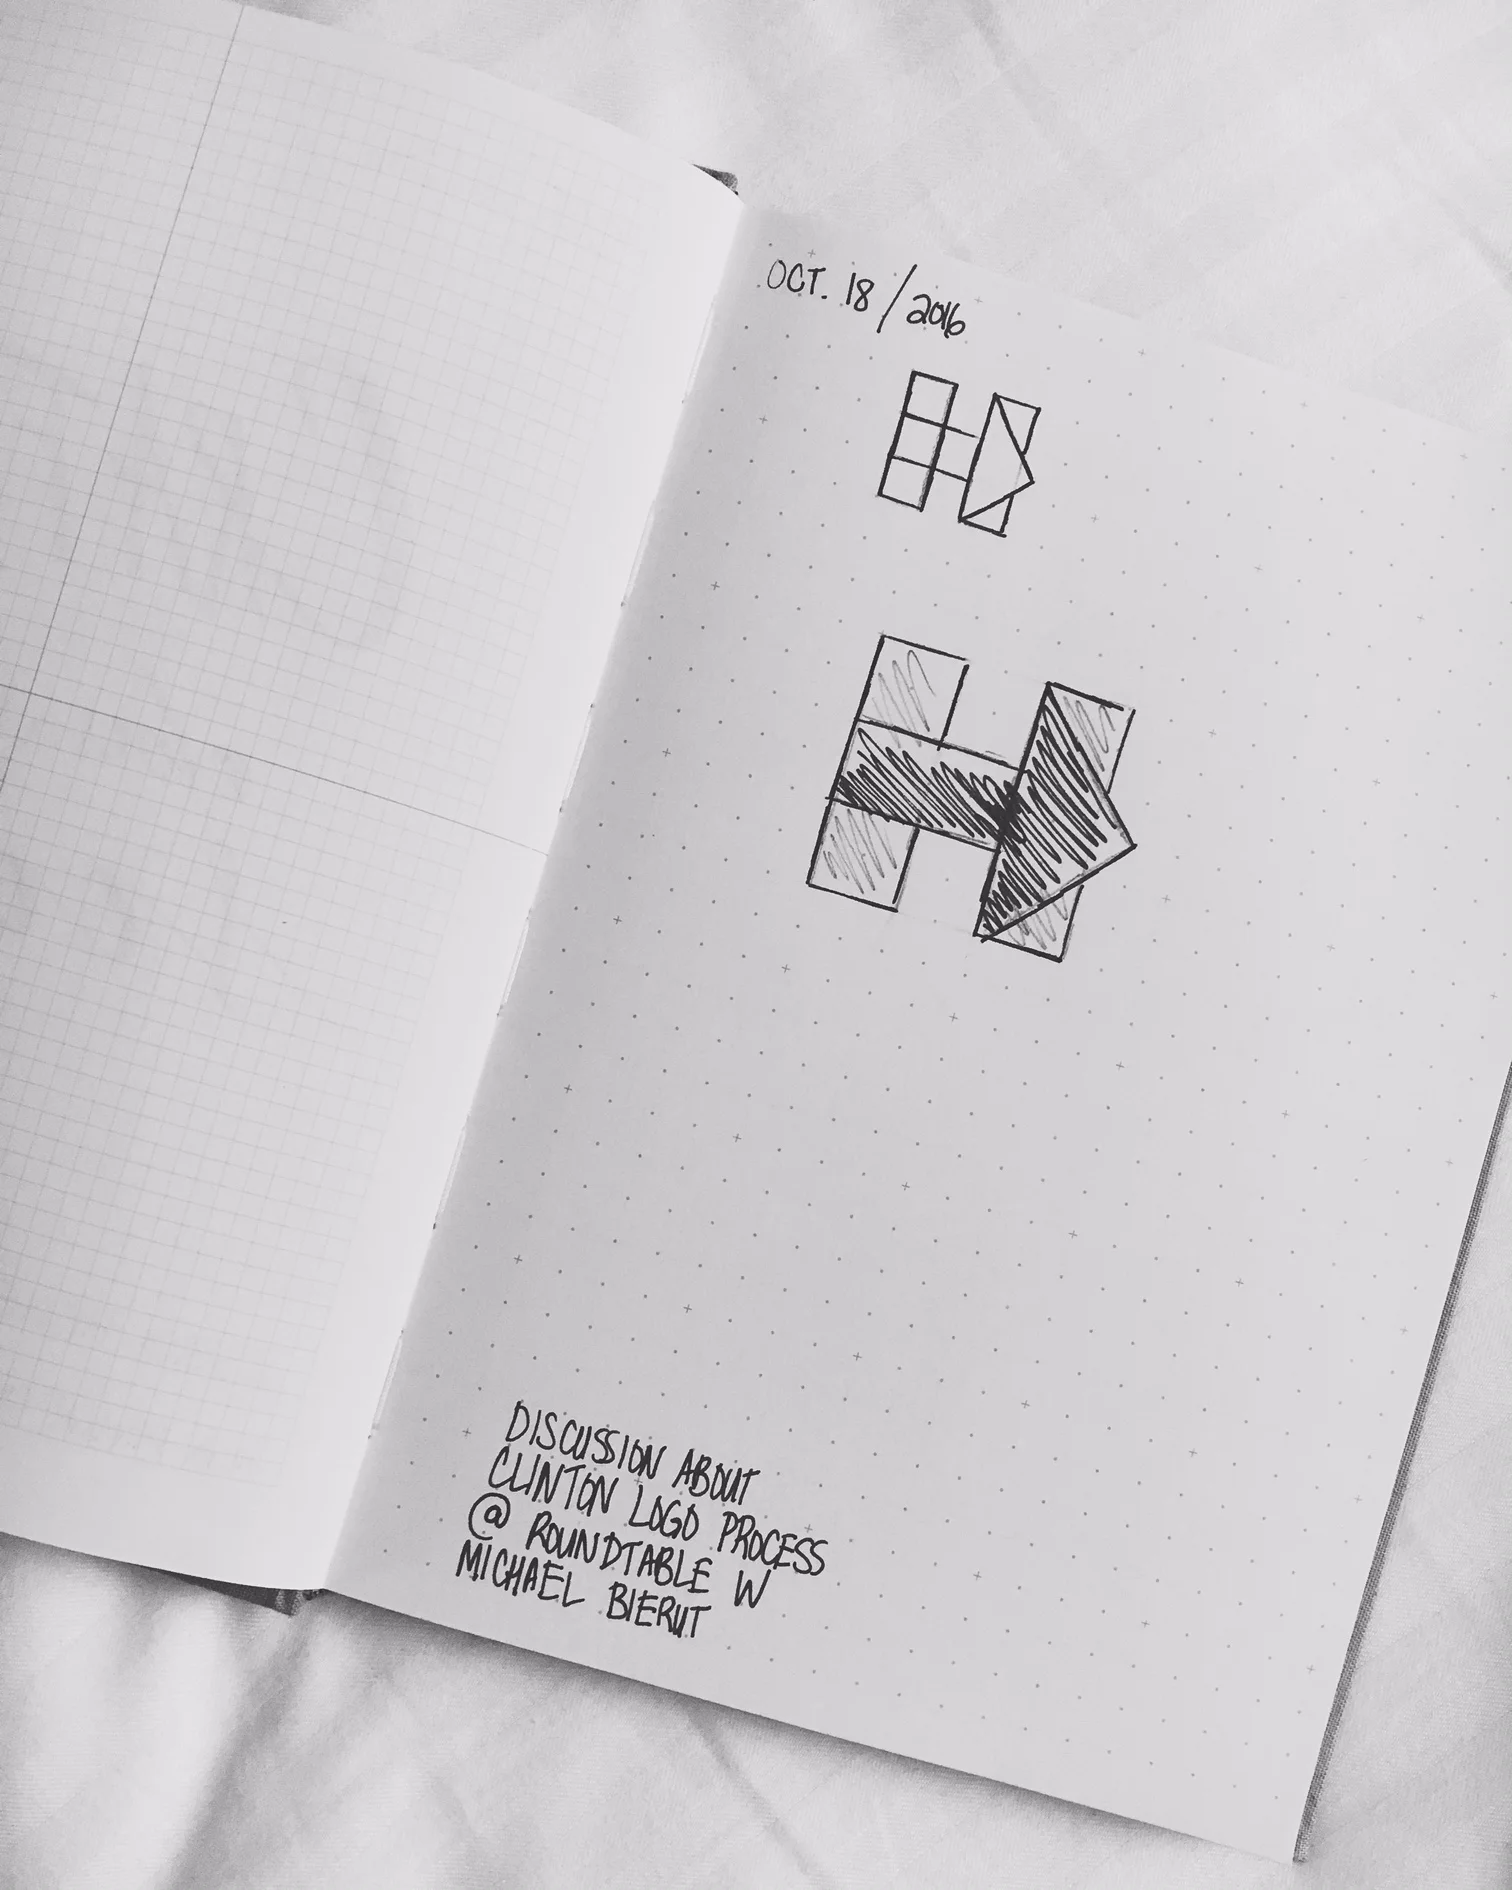 OCT. 18/2016
H
H
DISCUSSION ABOUT
CLINTON LOGO PROCESS
@ ROUNDTABLE W
MICHAEL BIERUT